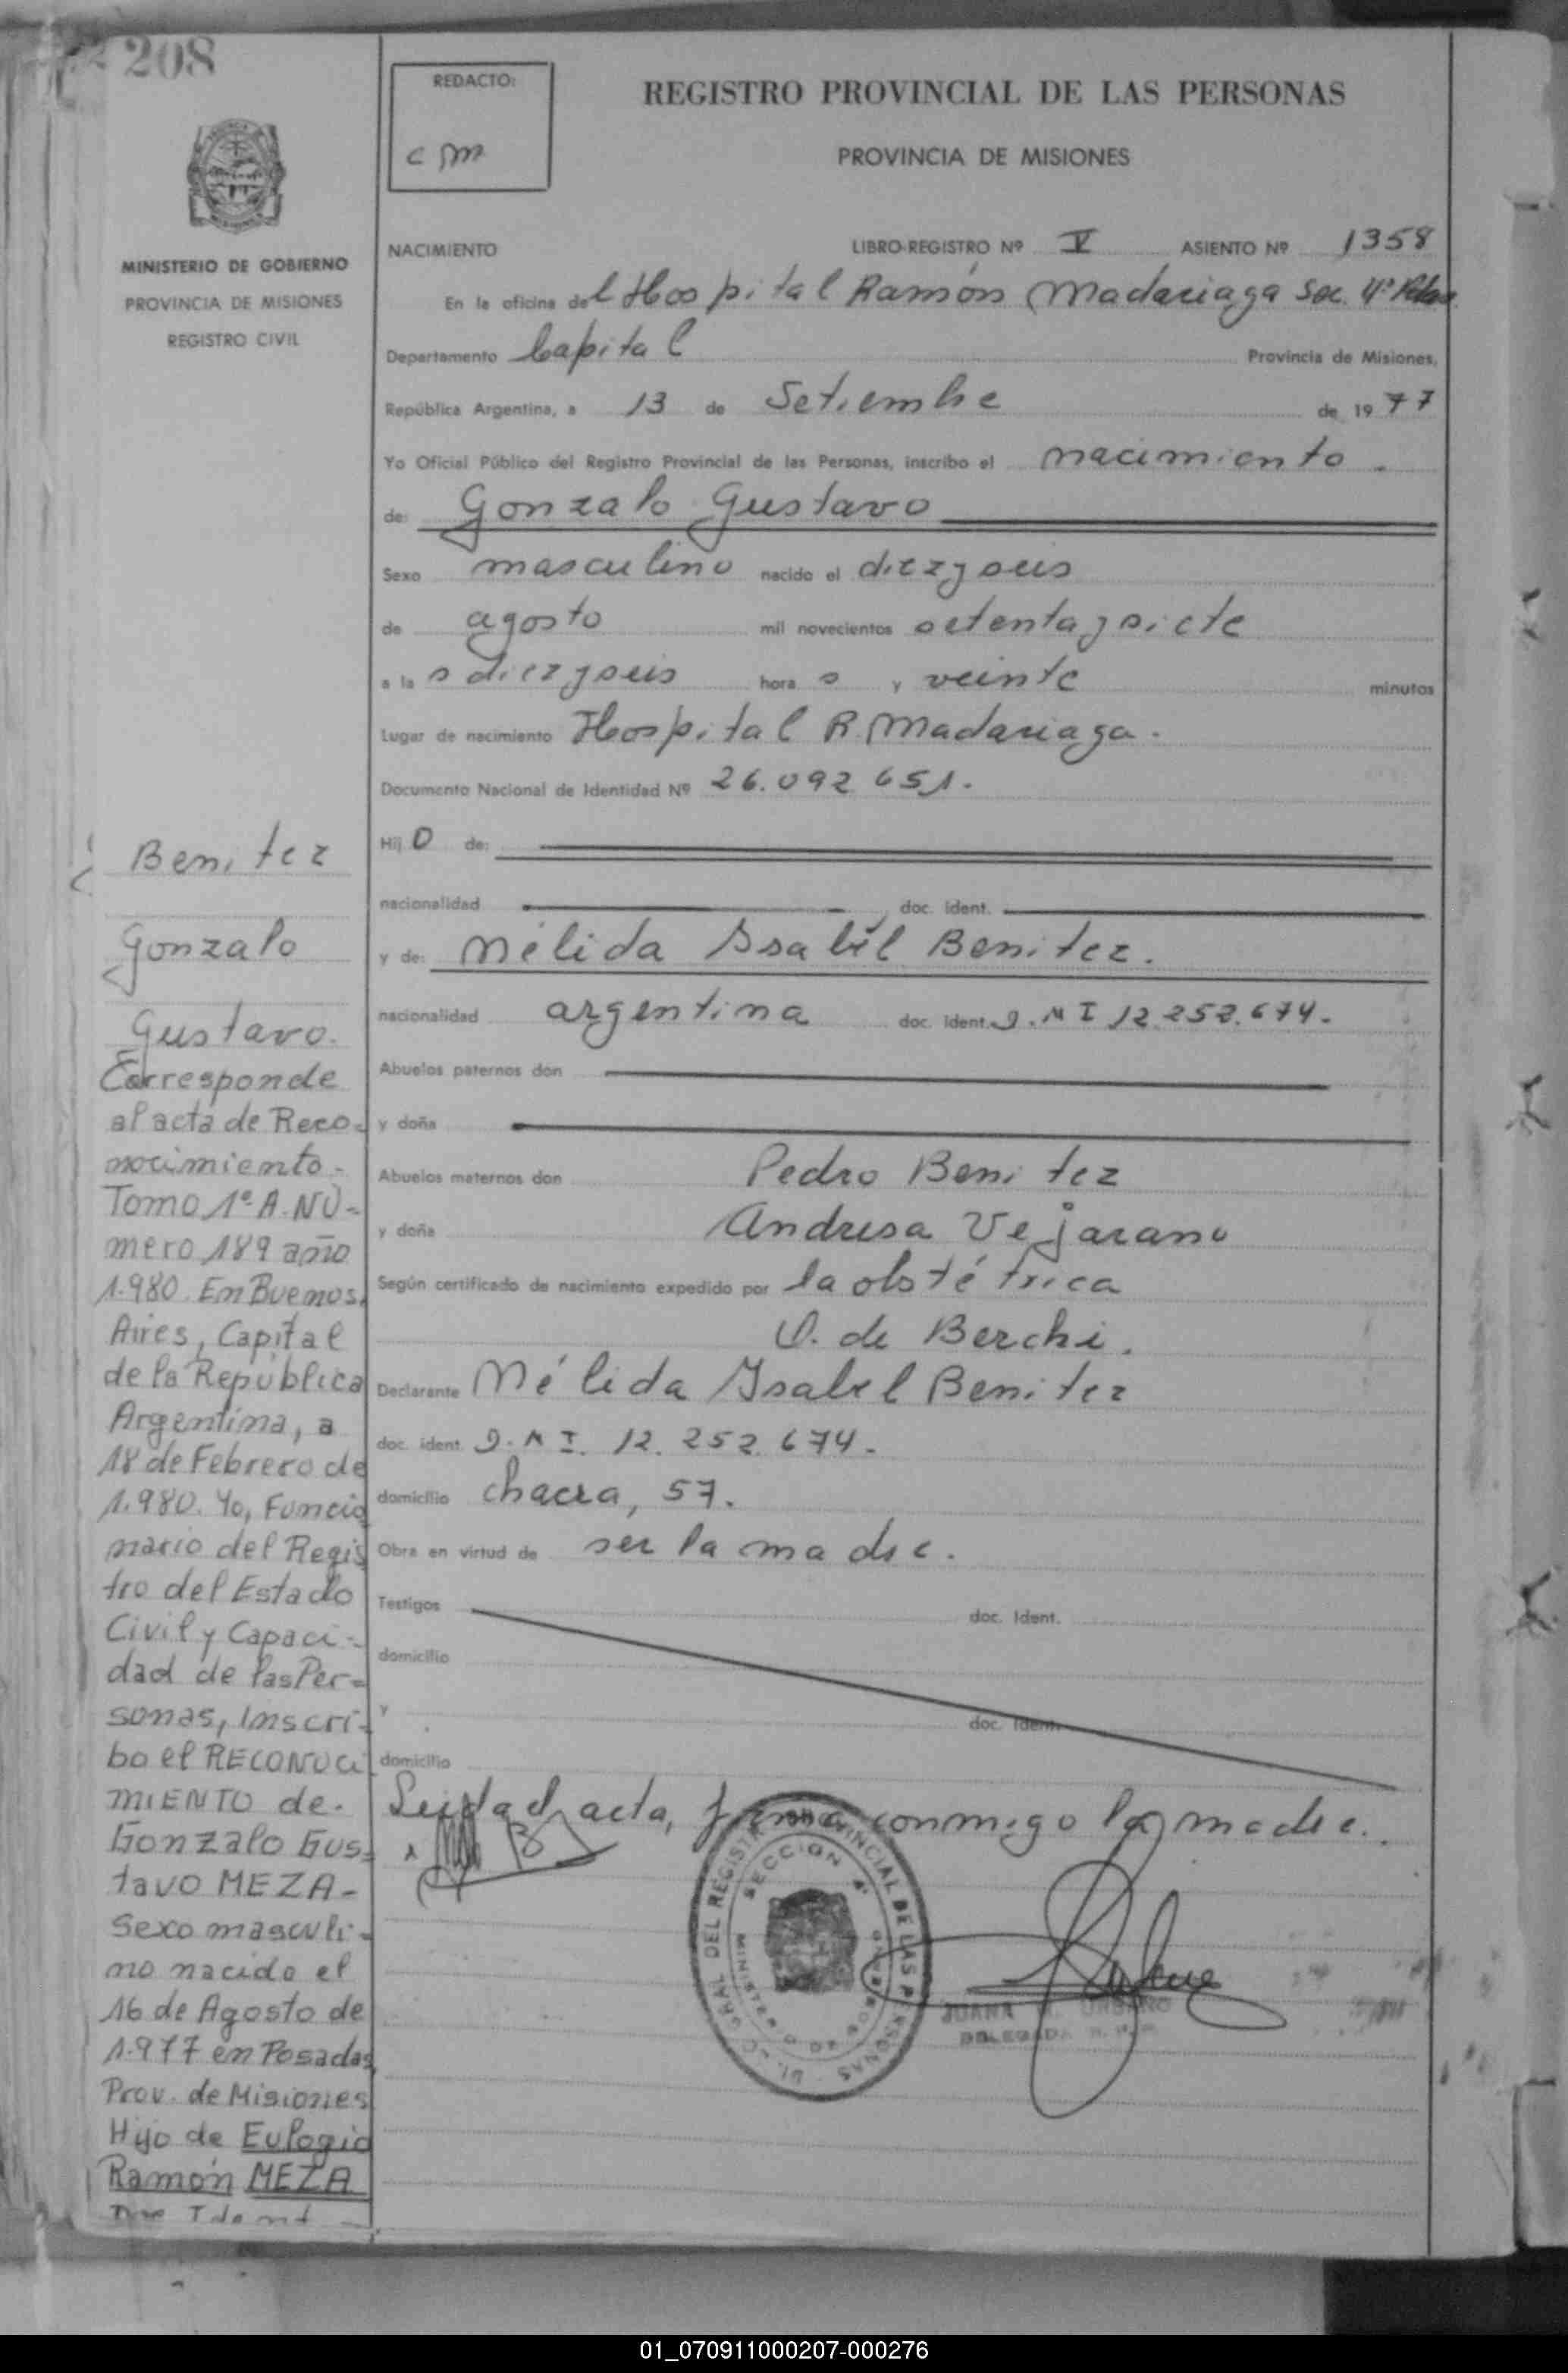 208
REDACTO:
CM
REGISTRO PROVINCIAL DE LAS PERSONAS
PROVINCIA DE MISIONES
MINISTERIO DE GOBIERNO
PROVINCIA DE MISIONES
REGISTRO CIVIL
NACIMIENTO LIBRO-REGISTRO Nº V ASIENTO Nº 1358
En la oficina del Hospital Ramón Madariaga Sec. 4ª
Departamento Capital Provincia de Misiones,
República Argentina, a 13 de Setiembre de 1977
Yo Oficial Público del Registro Provincial de las Personas, inscribo el nacimiento.
de: Gonzalo Gustavo
Sexo masculino nacido el diezyseis
de agosto mil novecientos setentaysiete
a las diezyseis horas y veinte minutos
Lugar de nacimiento Hospital R. Madariaga.
Documento Nacional de Identidad Nº 26.092.651.
Hijo de:
nacionalidad doc. ident.
y de: Nélida Isabel Benitez.
nacionalidad argentina doc. ident. D.N.I 12.252.674.
Abuelos paternos don
y doña
Abuelos maternos don Pedro Benitez
y doña Andresa Vejarano
Según certificado de nacimiento expedido por la obstétrica
O. de Berchi.
Declarante Nélida Isabel Benitez
doc. ident. D.N.I. 12.252.674.
domicilio chacra, 57.
Obra en virtud de ser la madre.
Testigos doc. Ident.
domicilio
y doc. Ident.
domicilio
Leida el acta, firma conmigo la madre.
DEL REGISTRO PROVINCIAL DE LAS PERSONAS
SECCION 4ª
JUANA URBANO
DELEGADA
Benitez
Gonzalo
Gustavo.
Corresponde
al acta de Reco-
nocimiento-
Tomo 1º A. NÚ-
mero 189 año
1.980. En Buenos
Aires, Capital
de la República
Argentina, a
18 de Febrero de
1.980. Yo, Funcio
nario del Regis
tro del Estado
Civil y Capaci-
dad de las Per-
sonas, Inscri-
bo el RECONOCI
MIENTO de-
Gonzalo Gus-
tavo MEZA-
Sexo masculi-
no nacido el
16 de Agosto de
1.977 en Posadas
Prov. de Misiones
Hijo de Eulogio
Ramón MEZA
01_070911000207-000276